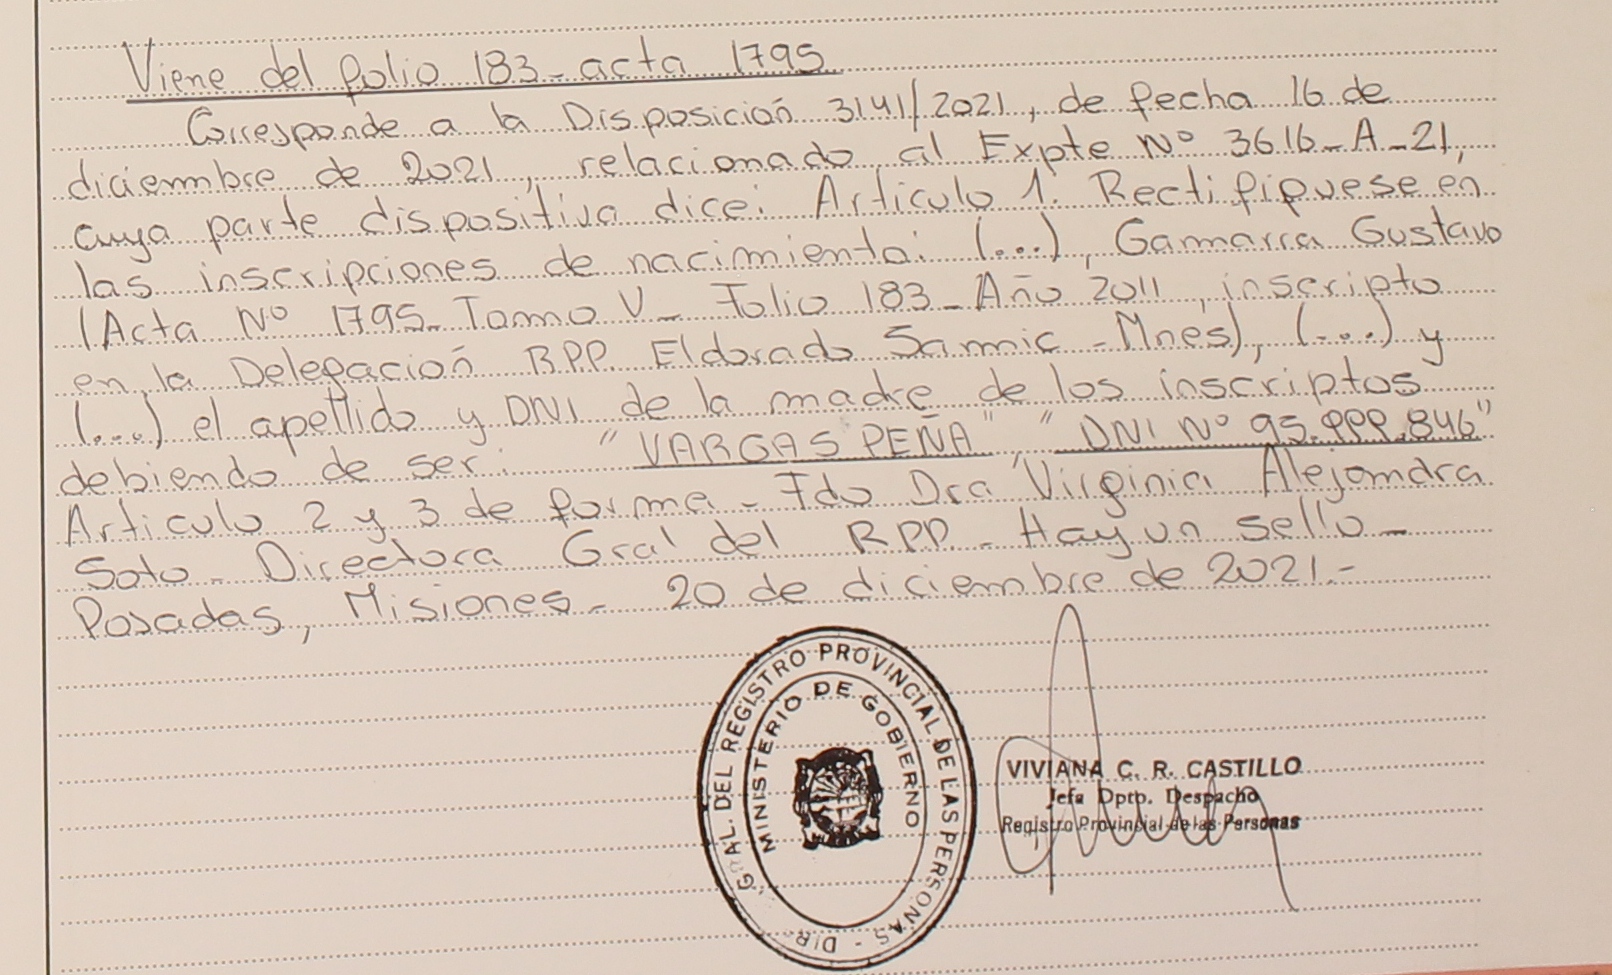 Viene del folio 183 - acta 1795
Corresponde a la Disposición 3141/2021, de fecha 16 de
diciembre de 2021, relacionado al Expte Nº 3616-A-21,
cuya parte dispositiva dice: Articulo 1. Rectifiquese en
las inscripciones de nacimiento: (...), Gamarra Gustavo
(Acta Nº 1795 - Tomo V - Folio 183 - Año 2011, inscripto
en la Delegación RPP. Eldorado Samic - Mnes), (...) y
(...) el apellido y DNI de la madre de los inscriptos
debiendo de ser: "VARGAS PEÑA" "DNI Nº 95.999.846"
Articulo 2 y 3 de forma - Fdo Dra Virginia Alejandra
Soto - Directora Gral del RPP - Hay un sello -
Posadas, Misiones - 20 de diciembre de 2021.-
DIR. GRAL. DEL REGISTRO PROVINCIAL DE LAS PERSONAS -
MINISTERIO DE GOBIERNO
VIVIANA C. R. CASTILLO
Jefa Dpto. Despacho
Registro Provincial de las Personas